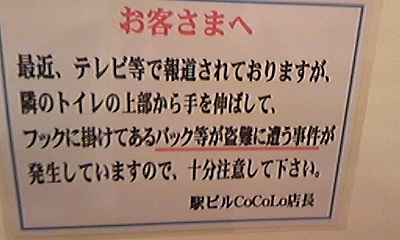 お客さまへ
最近、テレビ等で報道されておりますが、
隣のトイレの上部から手を伸ばして、
フックに掛けてあるバック等が盗難に遭う事件が
発生していますので、十分注意して下さい。
駅ビルCoCoLo店長